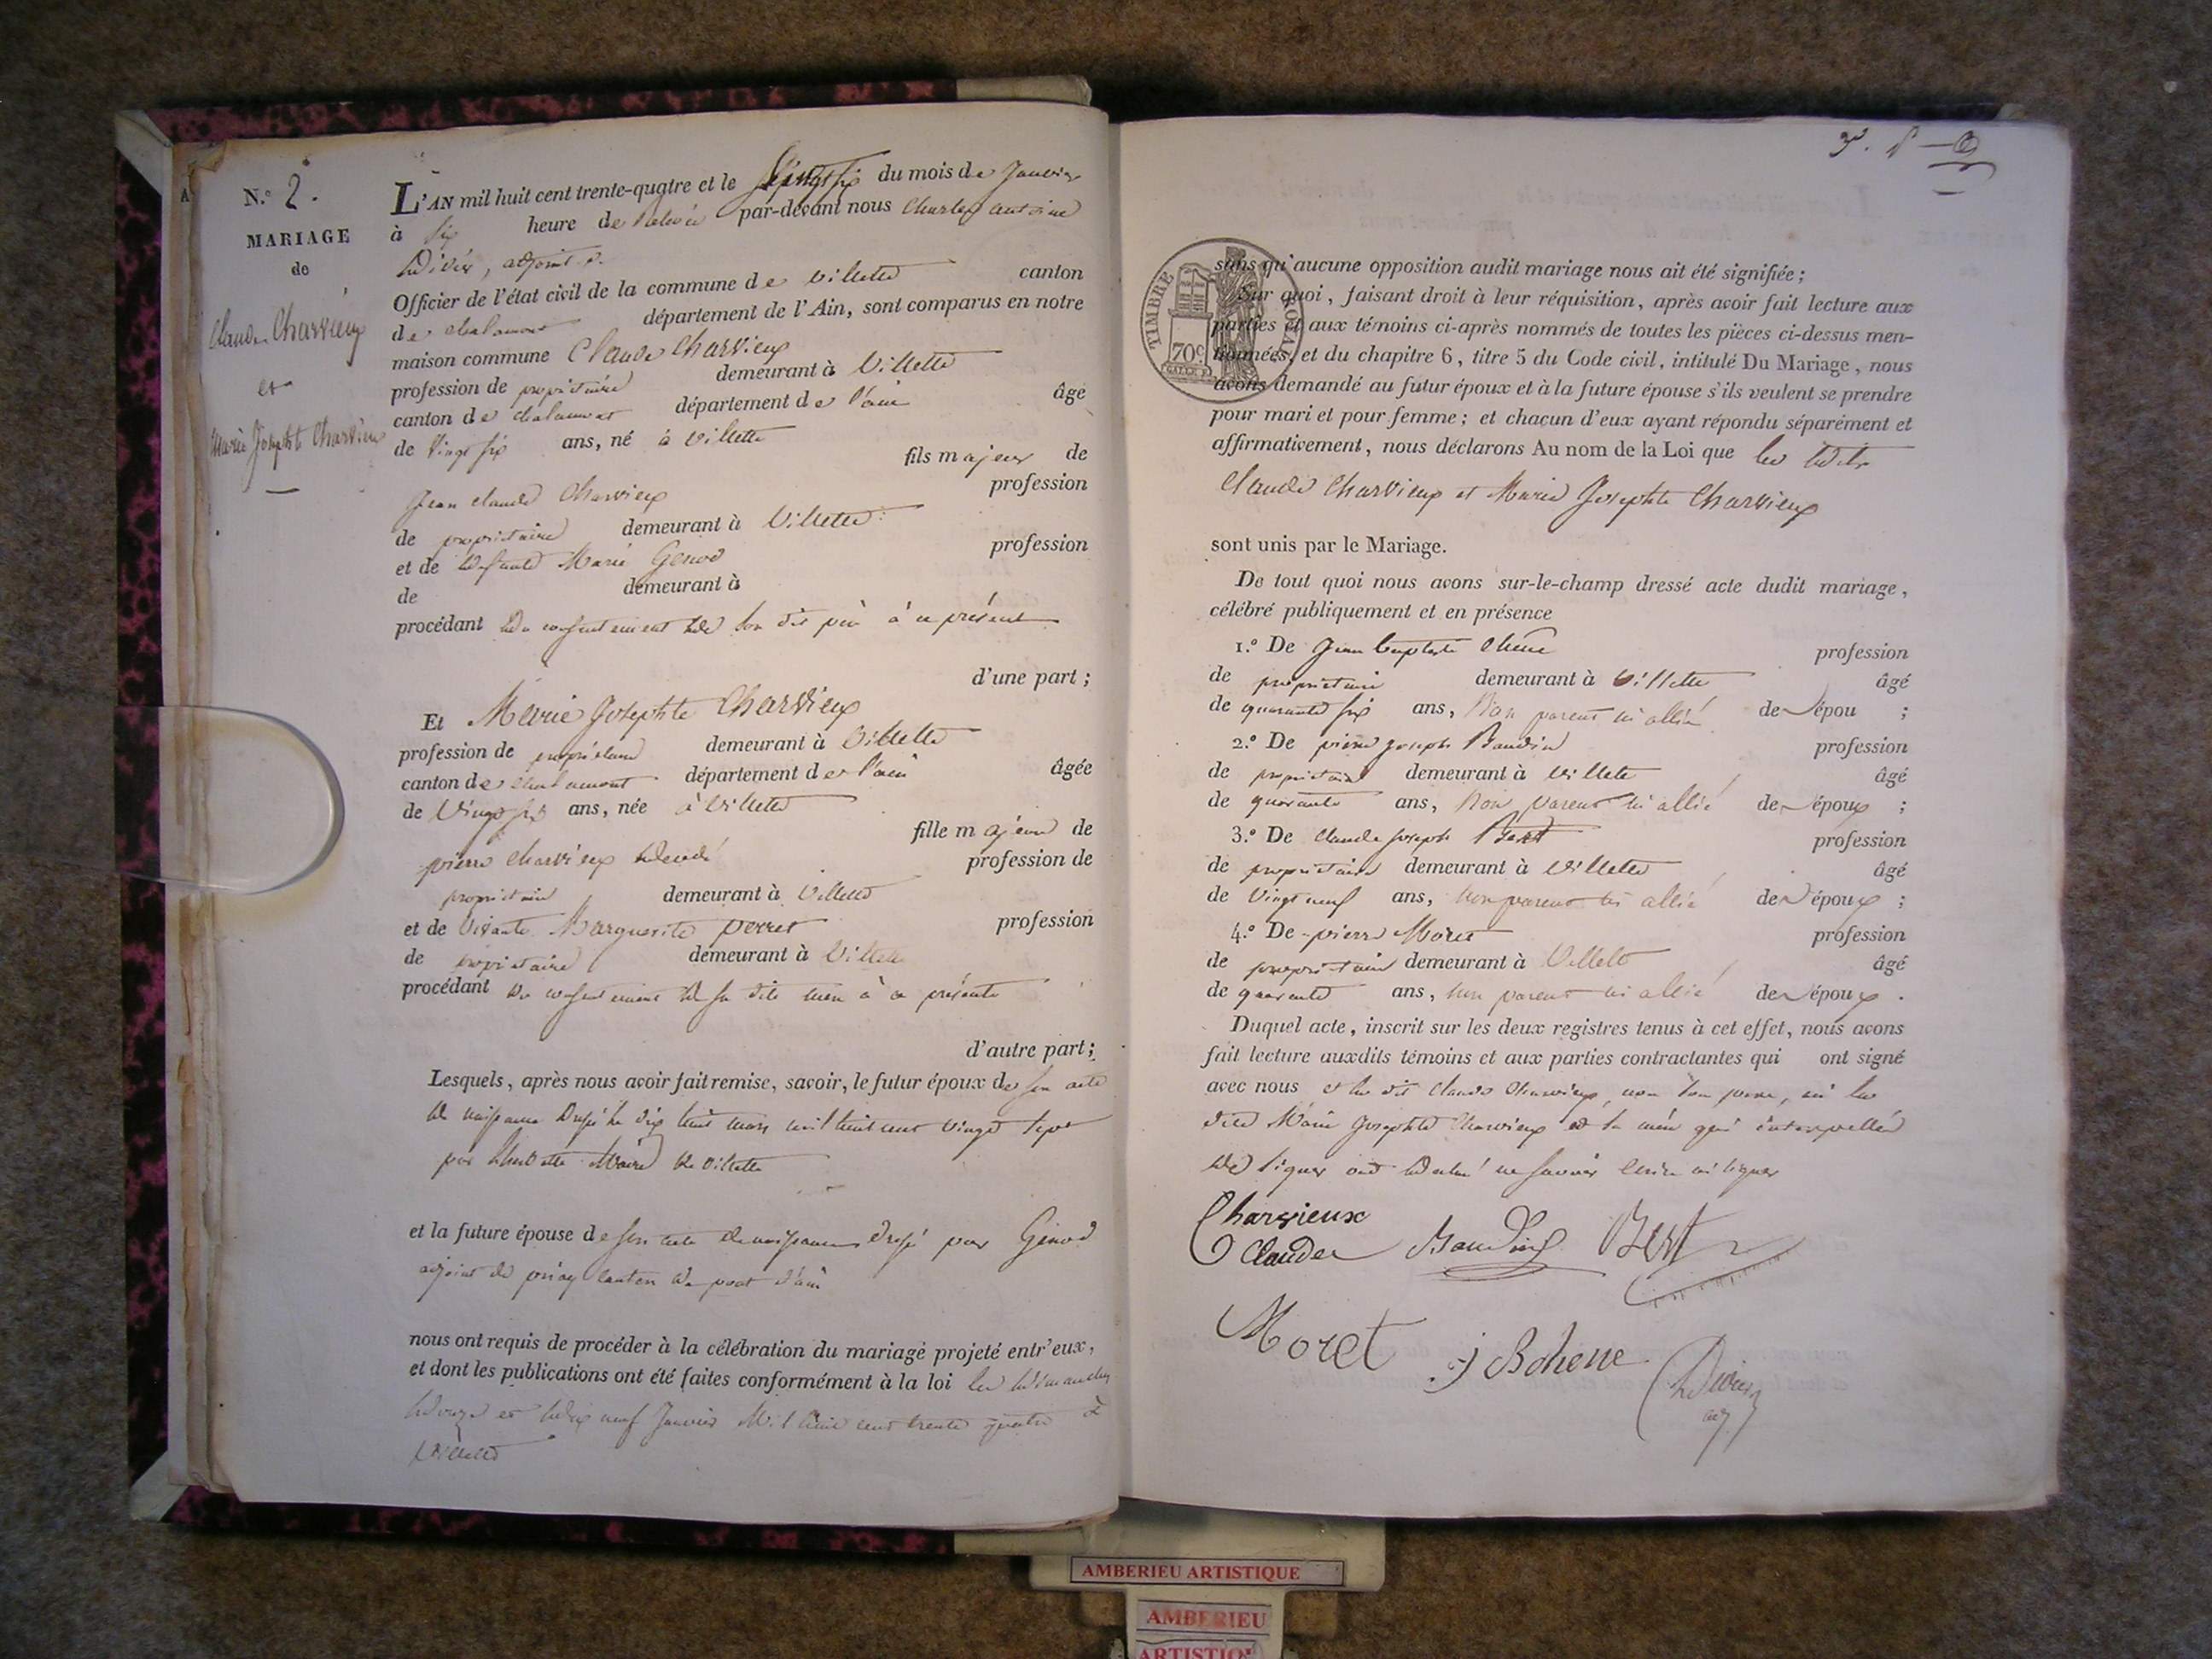 N.º 2.
MARIAGE
de
Claude Charvieux
et
Marie Josephte Charvieux
L'AN mil huit cent trente-quatre et le vingt six du mois de Janvier
à six heure de relevée par-devant nous Charles antoine
Divis, adjoint
Officier de l'état civil de la commune de villette canton
de chalamont département de l'Ain, sont comparus en notre
maison commune Claude Charvieux
profession de propriétaire demeurant à Villette
canton de chalamont département de l'ain âgé
de vingt six ans, né à villette
fils majeur de
Jean claude Charvieux profession
de propriétaire demeurant à Villette
et de défunte Marie Genod profession
de demeurant à
procédant du consentement de son dit père à ce présent
d'une part;
Et Marie Josephte Charvieux
profession de propriétaire demeurant à Villette
canton de chalamont département de l'ain âgée
de Vingt six ans, née à Villette
fille majeure de
pierre charvieux décédé profession de
propriétaire demeurant à Villette
et de vivante Marguerite perret profession
de propriétaire demeurant à Villette
procédant du consentement de sa dite mère à ce présente
d'autre part;
Lesquels, après nous avoir fait remise, savoir, le futur époux de son acte
de naissance dressé le dix huit mars mil huit cent vingt sept
par Maire de villette
et la future épouse de son acte de naissance dressé par Genod
adjoint de priay canton de pont d'ain
nous ont requis de procéder à la célébration du mariage projeté entr'eux,
et dont les publications ont été faites conformément à la loi les dimanches
douze et dix neuf Janvier Mil huit cent trente quatre à
Villette
TIMBRE ROYAL
70c
sans qu'aucune opposition audit mariage nous ait été signifiée;
Sur quoi, faisant droit à leur réquisition, après avoir fait lecture aux
parties et aux témoins ci-après nommés de toutes les pièces ci-dessus men-
tionnées, et du chapitre 6, titre 5 du Code civil, intitulé Du Mariage, nous
avons demandé au futur époux et à la future épouse s'ils veulent se prendre
pour mari et pour femme; et chacun d'eux ayant répondu séparément et
affirmativement, nous déclarons Au nom de la Loi que les dits
Claude Charvieux et Marie Josephte Charvieux
sont unis par le Mariage.
De tout quoi nous avons sur-le-champ dressé acte dudit mariage,
célébré publiquement et en présence
1.º De Jean baptiste Chêne profession
de propriétaire demeurant à Villette âgé
de quarante six ans, Non parent ni allié de épou ;
2.º De pierre joseph Baudin profession
de propriétaire demeurant à Villette âgé
de quarante ans, Non parent ni allié de époux ;
3.º De Claude joseph Bert profession
de propriétaire demeurant à Villette âgé
de vingt neuf ans, non parent ni allié de époux ;
4.º De pierre Moret profession
de propriétaire demeurant à Villette âgé
de quarante ans, non parent ni allié de époux .
Duquel acte, inscrit sur les deux registres tenus à cet effet, nous avons
fait lecture auxdits témoins et aux parties contractantes qui ont signé
avec nous et le dit Claude Charvieux, non son père, ni la
dite Marie Josephte Charvieux et sa mère qui interpellés
de signer ont déclaré ne savoir écrire ni signer
Charvieux
Claude Baudin Bert
Moret
AMBERIEU ARTISTIQUE
AMBERIEU
ARTISTIQ